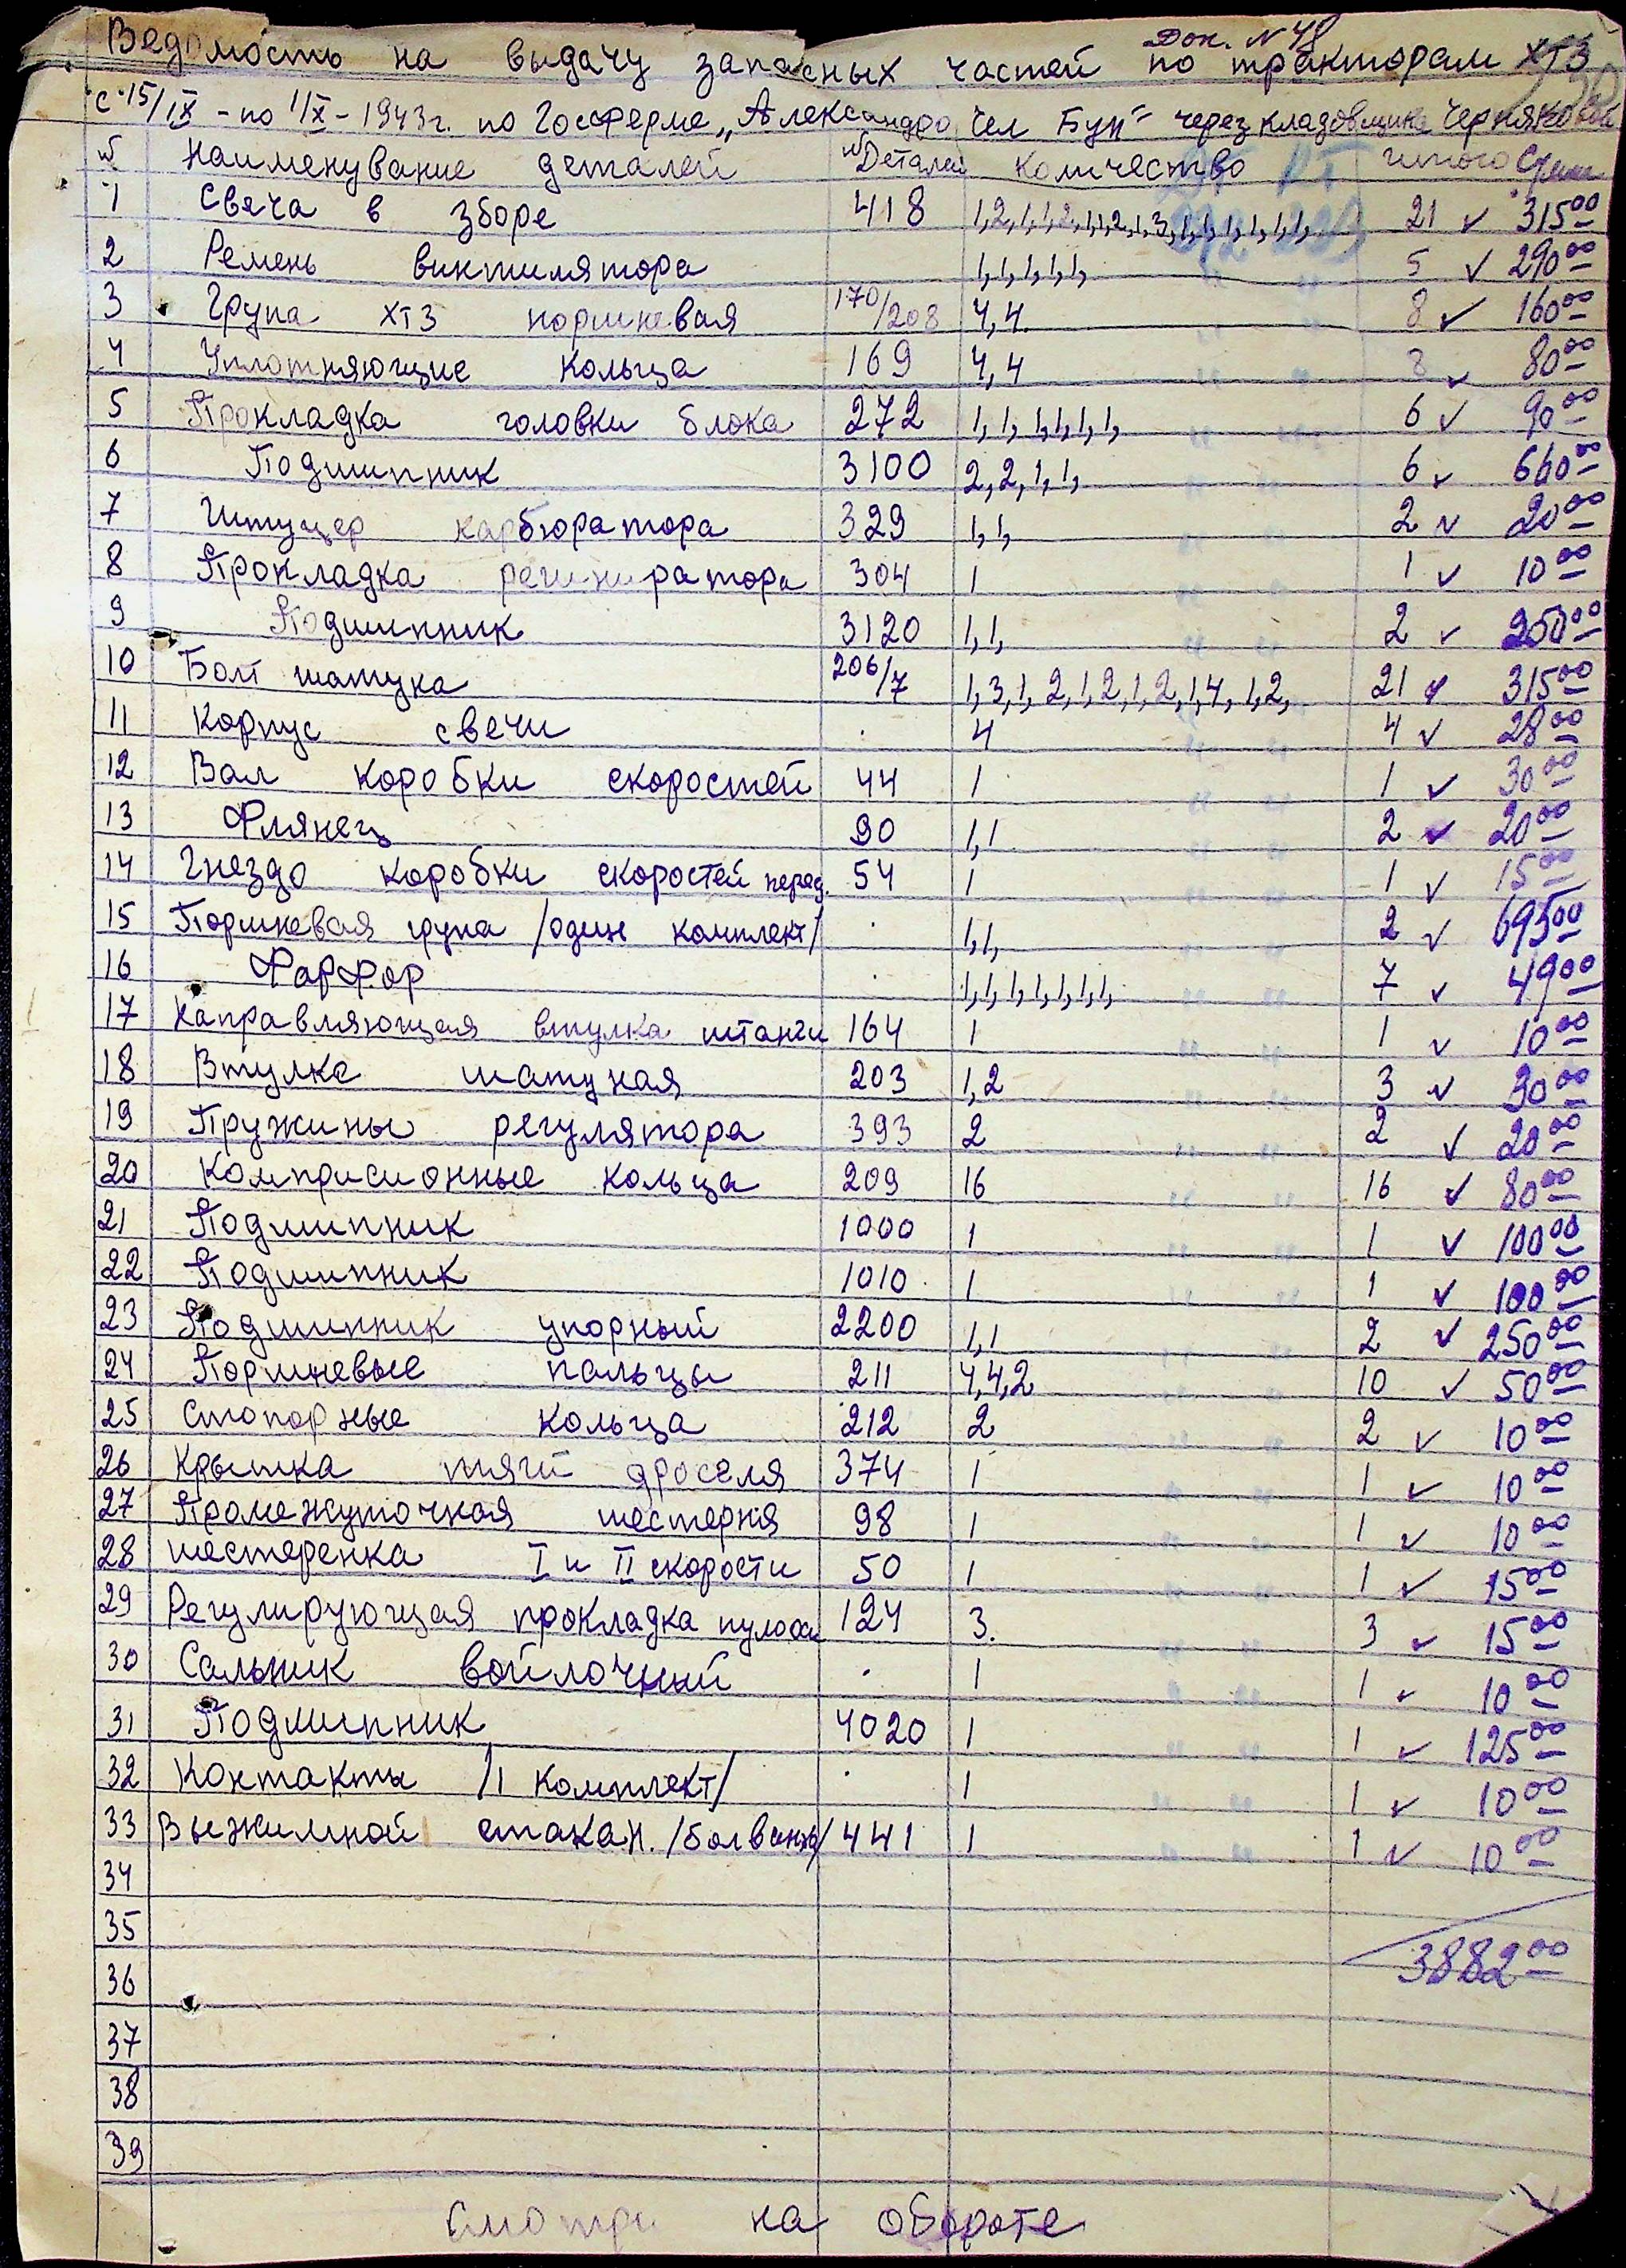 Док. N 48
Ведомость на выдачу запасных частей по тракторам ХТЗ
с 15/IX - по 1/X - 1943 г. по Госферме „Александро Чел Бун" через кладовщика Чернякова
№ Наименувание деталей № Деталей Количество итого Сумм
1 Свяча в зборе 418 1,2,1,1,2,1,1,2,1,3,1,1,1,1,1,1, 21 ✓ 315 00
2 Ремень виктилятора 1,1,1,1,1, 5 ✓ 290 00
3 Група ХТЗ поршневая 170/208 4,4 8 ✓ 160 00
4 Уплотняющие кольца 169 4,4 8 ✓ 80 00
5 Прокладка головки блока 272 1,1,1,1,1,1, 6 ✓ 90 00
6 Подшипник 3100 2,2,1,1, 6 ✓ 660 00
7 Штуцер карбюратора 329 1,1, 2 ✓ 20 00
8 Прокладка региниратора 304 1 1 ✓ 10 00
9 Подшипник 3120 1,1, 2 ✓ 250 00
10 Болт шатука 206/7 1,3,1,2,1,2,1,2,1,4,1,2, 21 ✓ 315 00
11 Корпус свечи 4 4 ✓ 28 00
12 Вал коробки скоростей 44 1 1 ✓ 30 00
13 Флянец 90 1,1 2 ✓ 20 00
14 Гнездо коробки скоростей перед. 54 1 1 ✓ 15 00
15 Поршневая група /один комплект/ 1,1, 2 ✓ 695 00
16 Фарфор 1,1,1,1,1,1,1, 7 ✓ 49 00
17 Направляющая втулка штанги 164 1 1 ✓ 10 00
18 Втулка шатуная 203 1,2 3 ✓ 30 00
19 Пружины регулятора 393 2 2 ✓ 20 00
20 Комприсионные кольца 209 16 16 ✓ 80 00
21 Подшипник 1000 1 1 ✓ 100 00
22 Подшипник 1010 1 1 ✓ 100 00
23 Подшипник упорный 2200 1,1 2 ✓ 250 00
24 Поршневые пальцы 211 4,4,2 10 ✓ 50 00
25 Стопорные кольца 212 2 2 ✓ 10 00
26 Крышка тяги дроселя 374 1 1 ✓ 10 00
27 Промежуточная шестерня 98 1 1 ✓ 10 00
28 шестеренка I и II скорости 50 1 1 ✓ 15 00
29 Регулирующая прокладка 124 3. 3 ✓ 15 00
30 Сальник войлочный 1 1 ✓ 10 00
31 Подшипник 4020 1 1 ✓ 125 00
32 Контакты /1 комплект/ 1 1 ✓ 10 00
33 Выжимной стакан. /болванка/ 441 1 1 ✓ 10 00
34
35
3882 00
36
37
38
39
Смотри на обороте